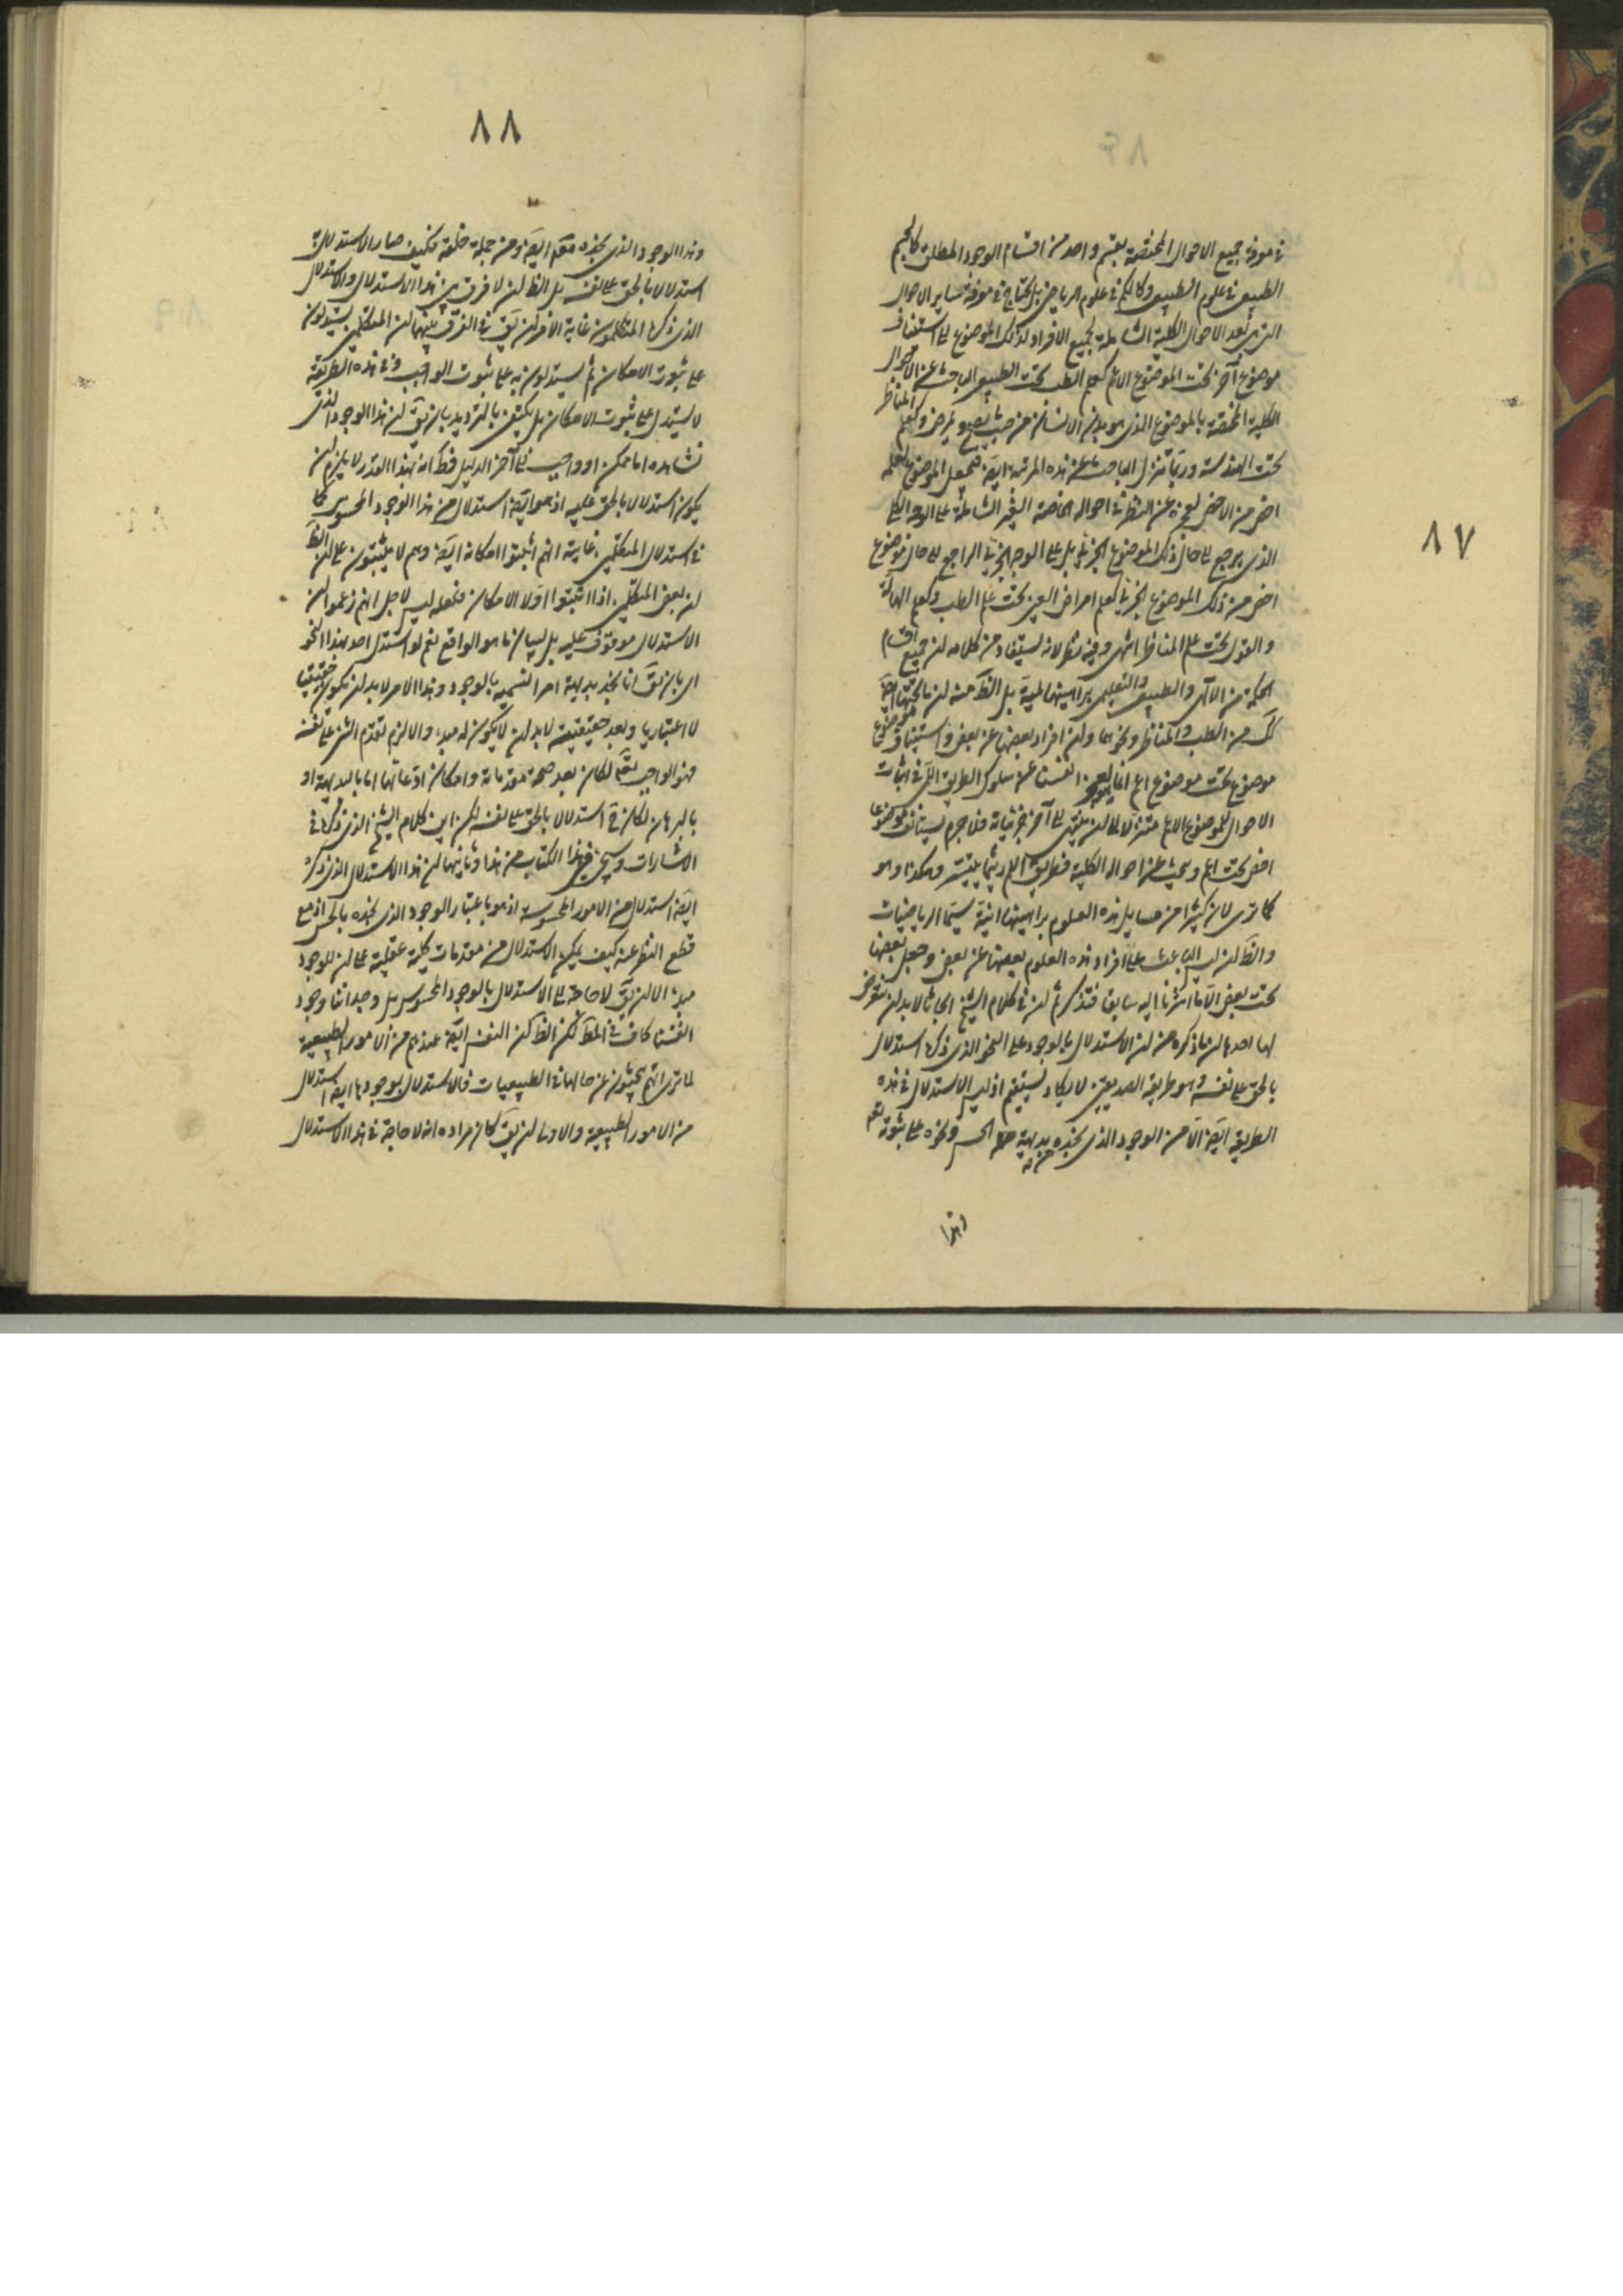 ٨٧
في معرفة جميع الاحوال المختصة بقسم واحد من اقسام الوجود المطلق كالجسم
الطبيعي في علوم الطبيعي وكالكم في علوم الرياضي بل يحتاج في معرفة ساير الاحوال
التي بعد الاحوال الكلية الشاملة لجميع الافراد لذلك الموضوع الى استيناف
موضوع آخر تحت الموضوع الاعم كعلم الطب تحت الطبيعي الباحث عن الاحوال
الكلية المختصة بالموضوع الذي هو بدن الانسان من حيث يصح ويمرض وكعلم المناظر
تحت الهندسة وربما تنزل الباحث عن هذه المرتبة ايضَ فيجعل الموضوع لعلمه
اخص من الاخص لعجزه عن النظر في احواله الخاصة الغير الشاملة على الوجه الكلي
الذي يرجع الى حال ذلك الموضوع الجزئي بل على الوجه الجزئي الراجع الى حال موضوع
اخص من ذلك الموضوع الجزئي كعلم امراض العين تحت علم الطب وكعلم الهالة
والقوس تحت علم المناظر انتهى وفيه نظر لانه يستفاد من كلامه ان جميع اقسام
الحكمة من الالهي والطبيعي والتعليمي براهينها لمية بل الظَ منه ان ما تحتها ايضَ
كَكَ من الطب والمناظر ونحوهما وان افراد بعضها عن بعض واستيناف موضوع
موضوع تحت موضوع اعم انما هو لعجز انفسنا عن سلوك الطريق اللمَي في اثبات
الاحوال للموضوع الاعم متنزلا الى ان ينتهي الى آخر جزئياته فلا جرم يستانف موضوعا
اخص تحت اعم ويبحث عن احواله الكلية بطريق اللم ريثما يتيسر وهكذا وهو
كما ترى لان كثيرا من مسايل هذه العلوم براهينها انيَة سيَما الرياضيات
والظَ ان ليس الباعث على افراد هذه العلوم بعضها عن بعض وجعل بعضها
تحت بعض الا ما اشرنا اليه سابقا فتذكر ثم ان في كلام الشيخ ابحاثا لا بد ان نتعرض
لها احدها ان ما ذكره من ان الاستدلال بالوجود على النحو الذي ذكره استدلال
بالحق على نفسه وهو طريقة الصديقين لا يكاد يستقيم اذ ليس الاستدلال في هذه
الطريقة ايضَ الا من الوجود الذي نجده بديهة من جهة الحس ونحوه على ثبوته تعَ
وهذا
٨٨
وهذا الوجود الذي نجده متقدم ايضَ ومن جملة خلقه فكيف صار الاستدلال به
استدلالا بالحق على نفسه بل الظَ ان لا فرق بين هذا الاستدلال والاستدلال
الذي ذكره المتكلمون غاية الامر ان يقَ في الفرق بينهما ان المتكلمين يستدلون
على ثبوت الامكان ثم يستدلون به على ثبوت الواجب وفي هذه الطريقة
لا يستدل على ثبوت الامكان بل يكتفى بالترديد بان يقَ ان هذا الوجود الذي
نشاهده اما ممكن او واجب الى آخر الدليل فظَ انه بهذا القدر لا يلزم ان
يكون استدلالا بالحق عليه اذ هو ايضَ استدلال من هذا الوجود المحسوس كما
في استدلال المتكلمين غايته انهم اثبتوا امكانه ايضَ وهم لا يثبتون على ان الظَ
ان بعض المتكلمين اذا اثبتوا اولا الامكان ففعله ليس لاجل انهم زعموا ان
الاستدلال موقوف عليه بل لبيان ما هو الواقع نعم لو استدل احد بهذا النحو
اي بان يقَ انا نجد بديهة امرا نسميه بالوجود وهذا الامر لا بد ان يكون حقيقيا
لا اعتباريا وبعد حقيقيته لا بد ان لا يكون له مبدء والا لزم تقدم الشئ على نفسه
فهو الواجب تعَ لكان بعد صحة مقدماته وامكان ادعائها اما بالبديهة او
بالبرهان لكان حَ استدلالا بالحق على نفسه لكن اين كلام الشيخ الذي ذكره في
الاشارات وسيجئ في هذا الكتاب من هذا وثانيهما ان هذا الاستدلال الذي ذكره
ايضَ استدلال من الامور المحسوسة اذ هو باعتبار الوجود الذي نجده بالحس اذ مع
قطع النظر عنه كيف يمكن الاستدلال من مقدمات كلية عقلية على ان للوجود
مبدء الا ان يقَ لا حاجة الى الاستدلال بالوجود المحسوس بل وجداننا وجود
انفسنا كاف في المطَ لكن الظَ كون النفس ايضَ عندهم من الامور الطبيعية
لما ترى انهم يبحثون عن حالها في الطبيعيات فالاستدلال بوجودها ايضَ استدلال
من الامور الطبيعية والاولى ان يقَ كان مراده انه لا حاجة في هذا الاستدلال